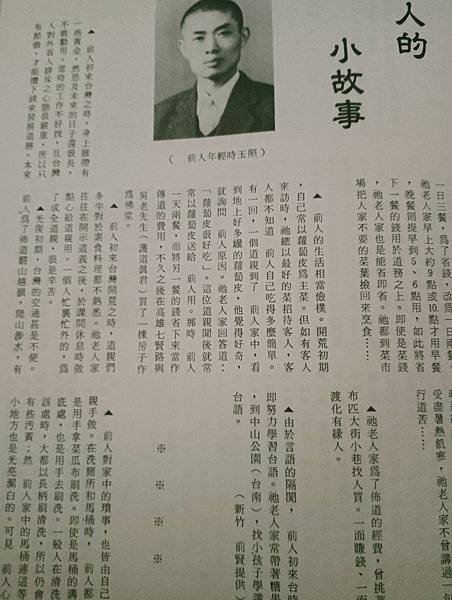 人的
小故事
（　前人年輕時玉照）
▲　前人初來台灣之時，身上雖帶有
一些黃金，然思及未來的日子還很長，
不敢動用。當時的工作不好找，且台灣
人對外省人排斥之心態很嚴重，所以只
有節儉，才能攢下錢來發展道務。本來
一日三餐，為了省錢，改為一日兩餐。
祂老人家早上大約9點或10點才用早餐
，晚餐則提早到5、6點用，如此將省
下一餐的錢用於道務之上。即使是菜錢
，祂老人家也是能省即省。祂都到菜市
場把人家不要的菜葉撿回來烹食……
▲　前人的生活相當儉樸。開荒初期
，自己常以蘿蔔皮為主菜。但如有客人
來訪時，祂總以最好的菜招待客人，客
人都不知道　前人自己吃得多麼簡單。
有一回，一個道親到了　前人家中，看
到地上好多曬的蘿蔔皮，他覺得好奇，
就詢問　前人原因。祂老人家回答道：
「蘿蔔皮很好吃」。這位道親聞後就常
常以蘿蔔皮送給　前人用。那時　前人
一天兩餐，而將另一餐的錢省下來當作
傳道的費用，不久之後在高雄七賢路與
吳老先生（護道眞君）買了一棟房子作
為佛堂。
▲　前人初來台灣開荒之時，道親們
多半對於素食料理都不熟悉。祂老人家
往往在開示道義之後，於課間休息時做
點心給道親用。一個人忙裏忙外的，為
了成全道親，很是辛苦。
▲光復初期，台灣的交通甚是不便。
前人為了佈道翻山越嶺，爬山涉水，有
受盡暑熱飢寒，祂老人家不曾講過一句
行道苦……
▲祂老人家為了佈道的經費，曾挑著
布匹大街小巷找人買。一面賺錢、一面
渡化有緣人。
▲由於言語的隔閡，　前人初來台時
即努力學習台語。祂老人家常帶著糖果
，到中山公園（台南），找小孩子學講
台語。　（新竹　前賢提供）
※　※　※　※
▲　前人對家中的瑣事，也皆由自己
親手做。在洗廁所和馬桶時，前人都
是用手拿菜瓜布刷洗。即使是馬桶的溝
底處，也是用手去刷洗。一般人在清洗
該處時，大都以長柄刷清洗，所以仍會
有些汚黃；然　前人家中的馬桶連這等
小地方也是光亮潔白的。可見　前人心